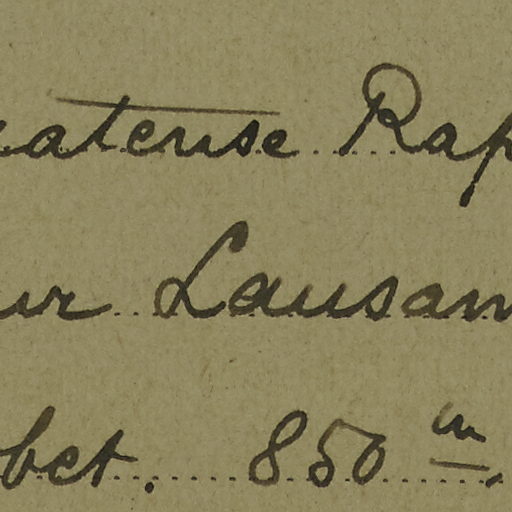 atense Rap
ur Lausan
bet. 850 m.